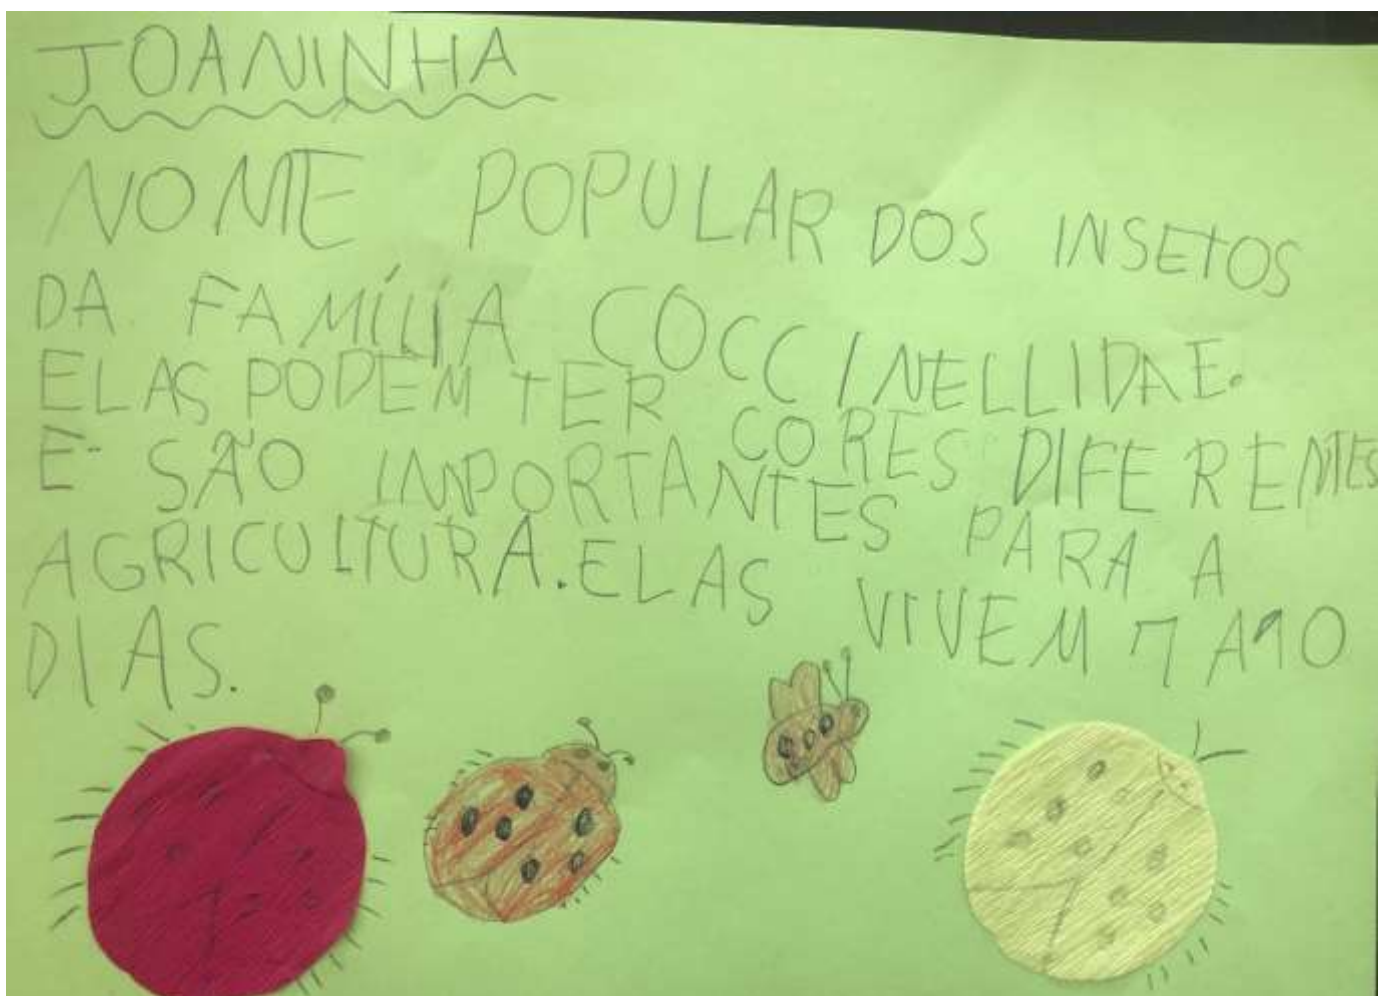 JOANINHA
NOME POPULAR DOS INSETOS
DA FAMÍLIA COCCINELLIDAE.
ELAS PODEM TER CORES DIFERENTES
E SÃO IMPORTANTES PARA A
AGRICULTURA. ELAS VIVEM 7 A 10
DIAS.